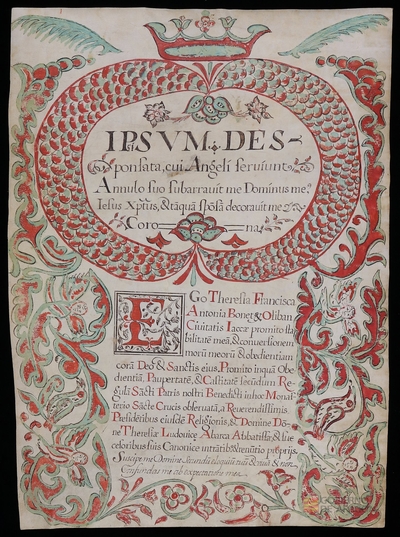 IPSVM DES-
ponsata, cui Angeli seruiunt
Annulo suo subarrauit me Dominus me9
Iesus Xptus, & tãquã spõsã decorauit me
Coro—na
EGo Theresia Francisca
Antonia Bonet & Oliban
Ciuitatis Iaccæ promito sta
bilitatē meã, & conuersionem
morũ meorũ & obedientiam
corã Deo & Sanctis eius, Promito inquã Obe
dientiã, Paupertatē, & Castitatē secũdum Re
gulã Sãcti Patris nostri Benedicti in hoc Monas
terio Sãctæ Crucis obseruatã, a Reuerendissimis
Præsidẽtibus eiusdē Religionis, & Domine Do
næ Theresiæ Ludouice Alarca Abbatissæ, & suc
cesoribus suis Canonice
proprijs.
Suscipe me Domine secundũ eloquiũ tuũ & viuã & non
Confundas me ab expectatione mea
GOBIERNO
DE ARAGON